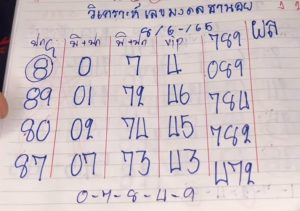 วิเคราะห์ เลข มงคล ฮานอย
8/6-/65
ปักตู พิเศษ VIP 789 ผล
8 0 7 4 089
89 01 72 46 784
80 02 74 45 782
87 07 73 43 472
0-7-8-4-9